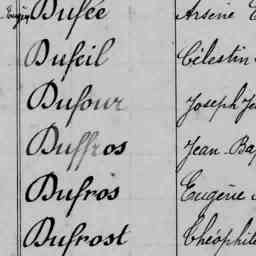 Dufée Arsène
Dufeil Célestin
Dufour Joseph
Duffros Jean-Bap
Dufros Eugène
Dufrost Théophile